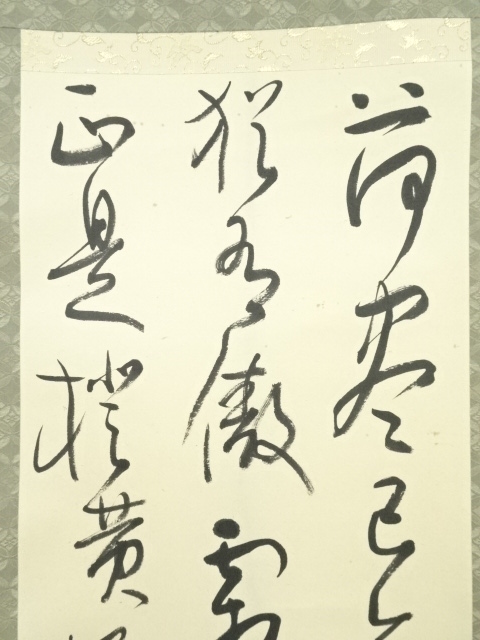 荷盡已
猶有傲霜
正是橙黄